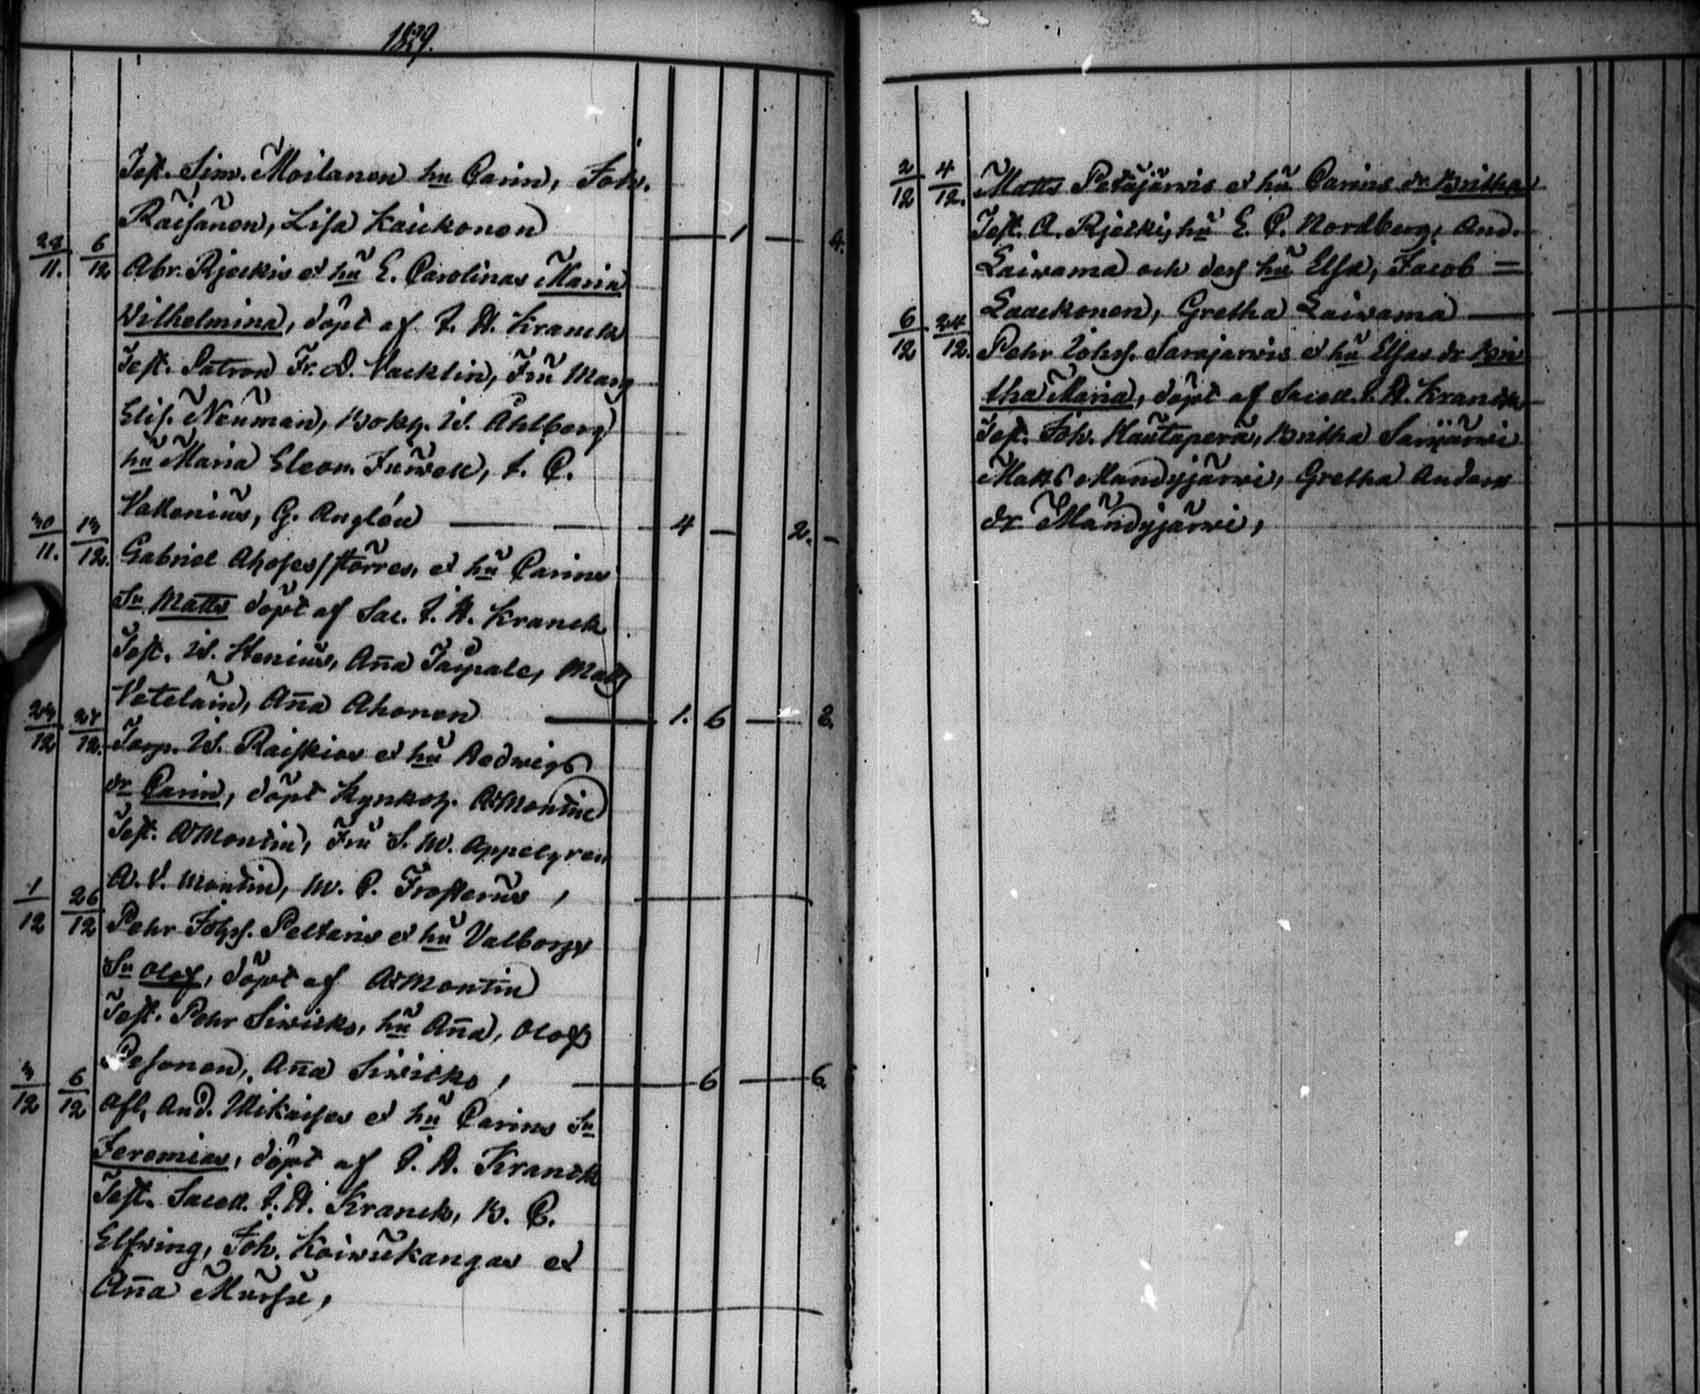 1829.
Test. Sim. Moilanen hu Carin, Joh.
Raisänen, Lisa Kaickonen — 1 — 4.
28/11. 6/12 Abr. Rjeckis et hu E. Carolinas Maria
Wilhelmina, döpt af J. H. Kranck
Test. Patron Fr. D. Vacklin, Fru Marg
Elis. Neuman, Bokh. W. Åhlberg
hu Maria Eleon. Juwell, J. C.
Vallenius, G. Anglén — 4 — 2. —
30/11. 13/12. Gabriel Ahoses / storres, et hu Carins
Sn Matts döpt af Sac. J. H. Kranck
Test. W. Stenius, Aña Taipale, Matts
Vetelain, Aña Ahonen — 1. 6 — 2.
23/12 27/12. Torp. W. Raiskios et hu Hedwigs
dr Carin, döpt Kyrkoh. A Montin
Test. A Montin, Fru S. M. Appelgren
A. V. Montin, M. C. Frosterus,
1/12 26/12 Pehr Johss. Peltaris et hu Valborgs
Sn Olof, döpt af A Montin
Test. Pehr Siwicko, hu Aña, Olof
Pesonen, Aña Siwicko, — 6 — 6.
3/12 6/12 Afl. And. Mikaises et hu Carins Sn
Jeremias, döpt af J. H. Kranck
Test. Sacell. J. H. Kranck, B. C.
Elfving, Joh. Koiwukangas et
Aña Mursu,
2/12 4/12. Matts Petäjärwis et hu Carins dr Britha
Test. A. Rjecki, hu E. C. Nordberg, And.
Laiwama och dess hu Elsa, Jacob =
Laackonen, Gretha Laiwama —
6/12 24/12. Pehr Johss. Sarajarwis et hu Elsas dr Bri
tha Maria, döpt af Sacell. J. H. Kranck
Test. Joh. Hautaperä, Britha Sarijärwi
Matts Mandyjärwi, Gretha Anders
dr Mändyjärwi,